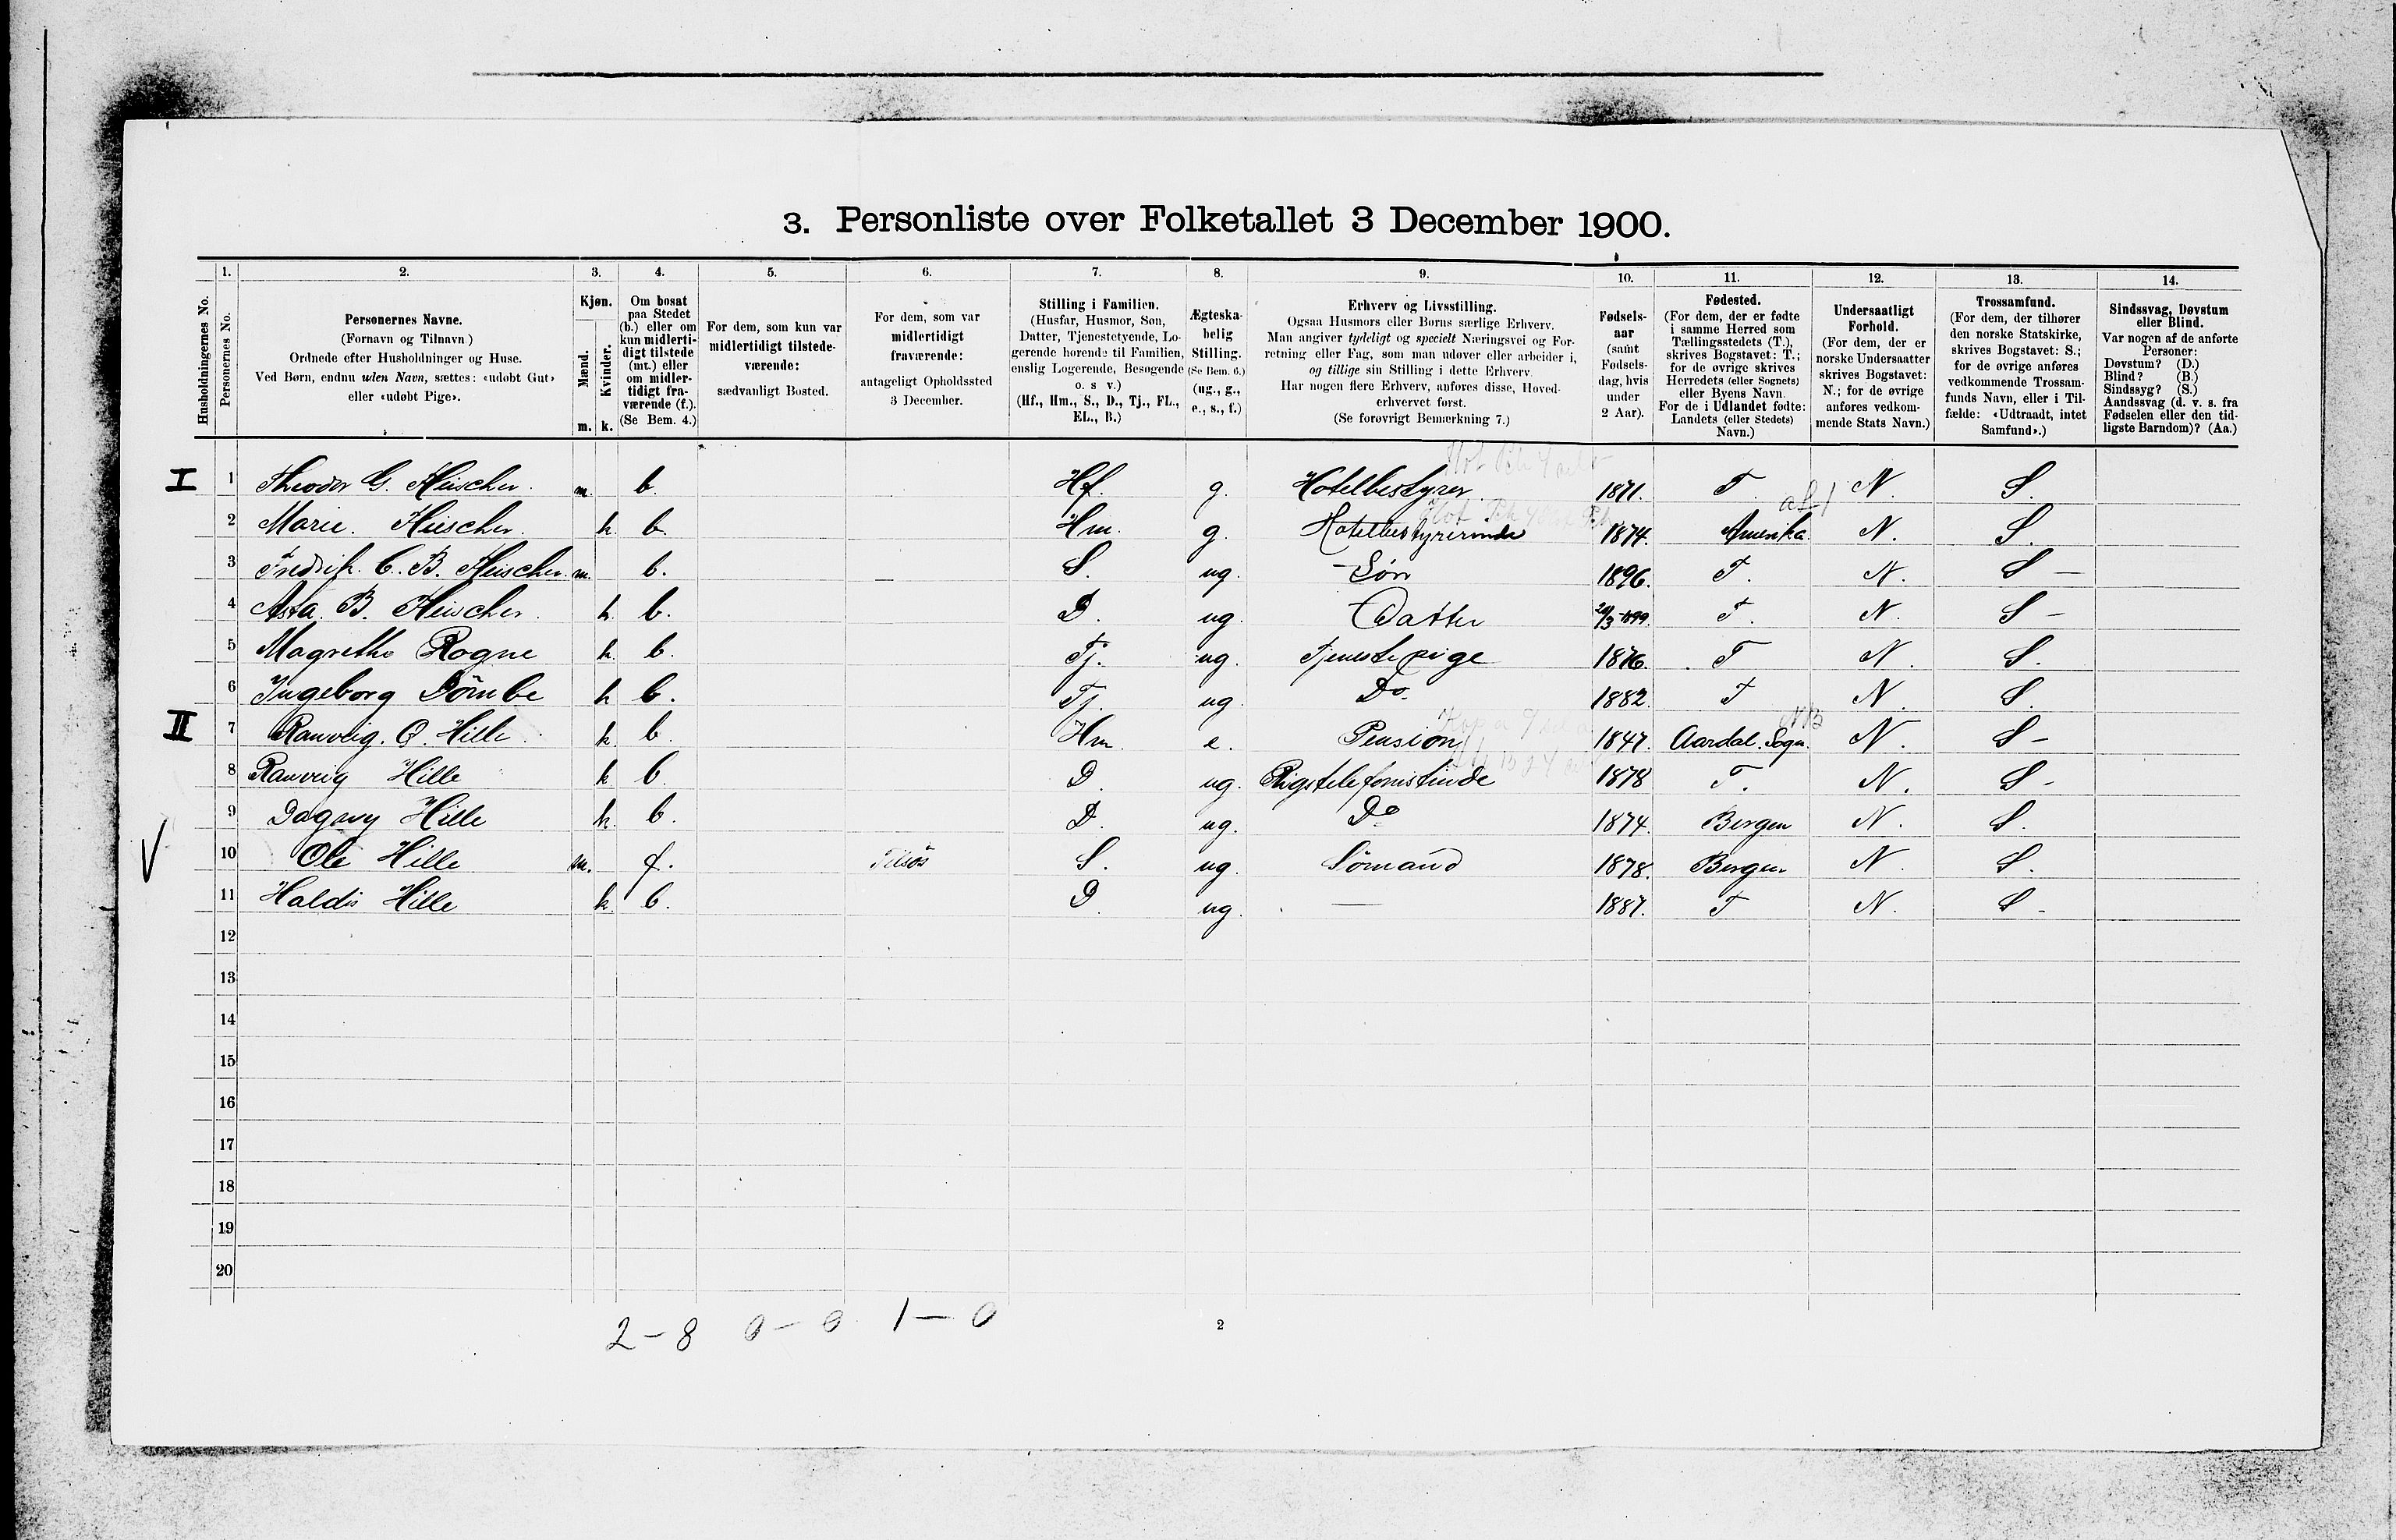 3. Personliste over Folketallet 3 December 1900.
1. 2. 3. 4. 5. 6. 7. 8. 9. 10. 11. 12. 13. 14.
Husholdningernes No.
Personernes No.
Personernes Navne.
(Fornavn og Tilnavn)
Ordnede efter Husholdninger og Huse.
Ved Børn, endnu uden Navn, sættes: «udøbt Gut»
eller «udøbt Pige».
Kjøn.
Mænd.
Kvinder.
m. k.
Om bosat
paa Stedet
(b.) eller om
kun midlerti-
digt tilstede
(mt.) eller
om midler-
tidigt fra-
værende (f.).
(Se Bem. 4.)
For dem, som kun var
midlertidigt tilstede-
værende:
sædvanligt Bosted.
For dem, som var
midlertidigt
fraværende:
antageligt Opholdssted
3 December.
Stilling i Familien.
(Husfar, Husmor, Søn,
Datter, Tjenestetyende, Lo-
gerende hørende til Familien,
enslig Logerende, Besøgende
o. s v.)
(Hf., Hm., S., D., Tj., FL.,
EL., B.)
Ægteska-
belig
Stilling.
(Se Bem. 6.)
(ug., g.,
e., s., f.)
Erhverv og Livsstilling.
Ogsaa Husmors eller Børns særlige Erhverv.
Man angiver tydeligt og specielt Næringsvei og For-
retning eller Fag, som man udøver eller arbeider i,
og tillige sin Stilling i dette Erhverv.
Har nogen flere Erhverv, anføres disse, Hoved-
erhvervet først.
(Se forøvrigt Bemærkning 7.)
Fødsels-
aar
(samt
Fødsels-
dag, hvis
under
2 Aar).
Fødested.
(For dem, der er fødte
i samme Herred som
Tællingsstedets (T.),
skrives Bogstavet: T.;
for de øvrige skrives
Herredets (eller Sognets)
eller Byens Navn.
For de i Udlandet fødte:
Landets (eller Stedets)
Navn.)
Undersaatligt
Forhold.
(For dem, der er
norske Undersaatter
skrives Bogstavet:
N.; for de øvrige
anføres vedkom-
mende Stats Navn.)
Trossamfund.
(For dem, der tilhører
den norske Statskirke,
skrives Bogstavet: S.;
for de øvrige anføres
vedkommende Trossam-
funds Navn, eller i Til-
fælde: «Udtraadt, intet
Samfund».)
Sindssvag, Døvstum
eller Blind.
Var nogen af de anførte
Personer:
Døvstum? (D.)
Blind? (B.)
Sindssyg? (S.)
Aandssvag (d. v. s. fra
Fødselen eller den tid-
ligste Barndom)? (Aa.)
I 1 Theodor G. m. b. Hf. g. Hotelbestyrer 1871. T. N. S.
2 Marie. k. b. Hm. g. Hotelbestyrerinde 1874. Amerika N. S.
3 Fredrik C. B. m. b. S. ug. Søn 1896. T. N. S —
4 Asta B. k. b. D. ug. Datter 29/3 1899. T. N. S –
5 Magrethe Rogne k. b. Tj. ug. Tjenestepige 1876. T N. S.
6 Ingeborg Dömbe k b. Tj. ug Do. 1882 T N. S.
II 7 Ranveig. O. Hille k. b. Hm. e. Pension 1847. Aardal. Sogn. N. S –
8 Ranveig Hille k b. D. ug. Rigstelefonistinde 1878 T. N. S –
9 Dagny Hille k. b. D. ug. Do 1874. Bergen N. S.
10 Ole Hille m. f. S. ug. Sömand 1878. Bergen N. S.
11 Haldis Hille k. b. D. ug. — 1887. T N. S –
12
13
14
15
16
17
18
19
20
2 – 8 0 – 0 1 – 0
2